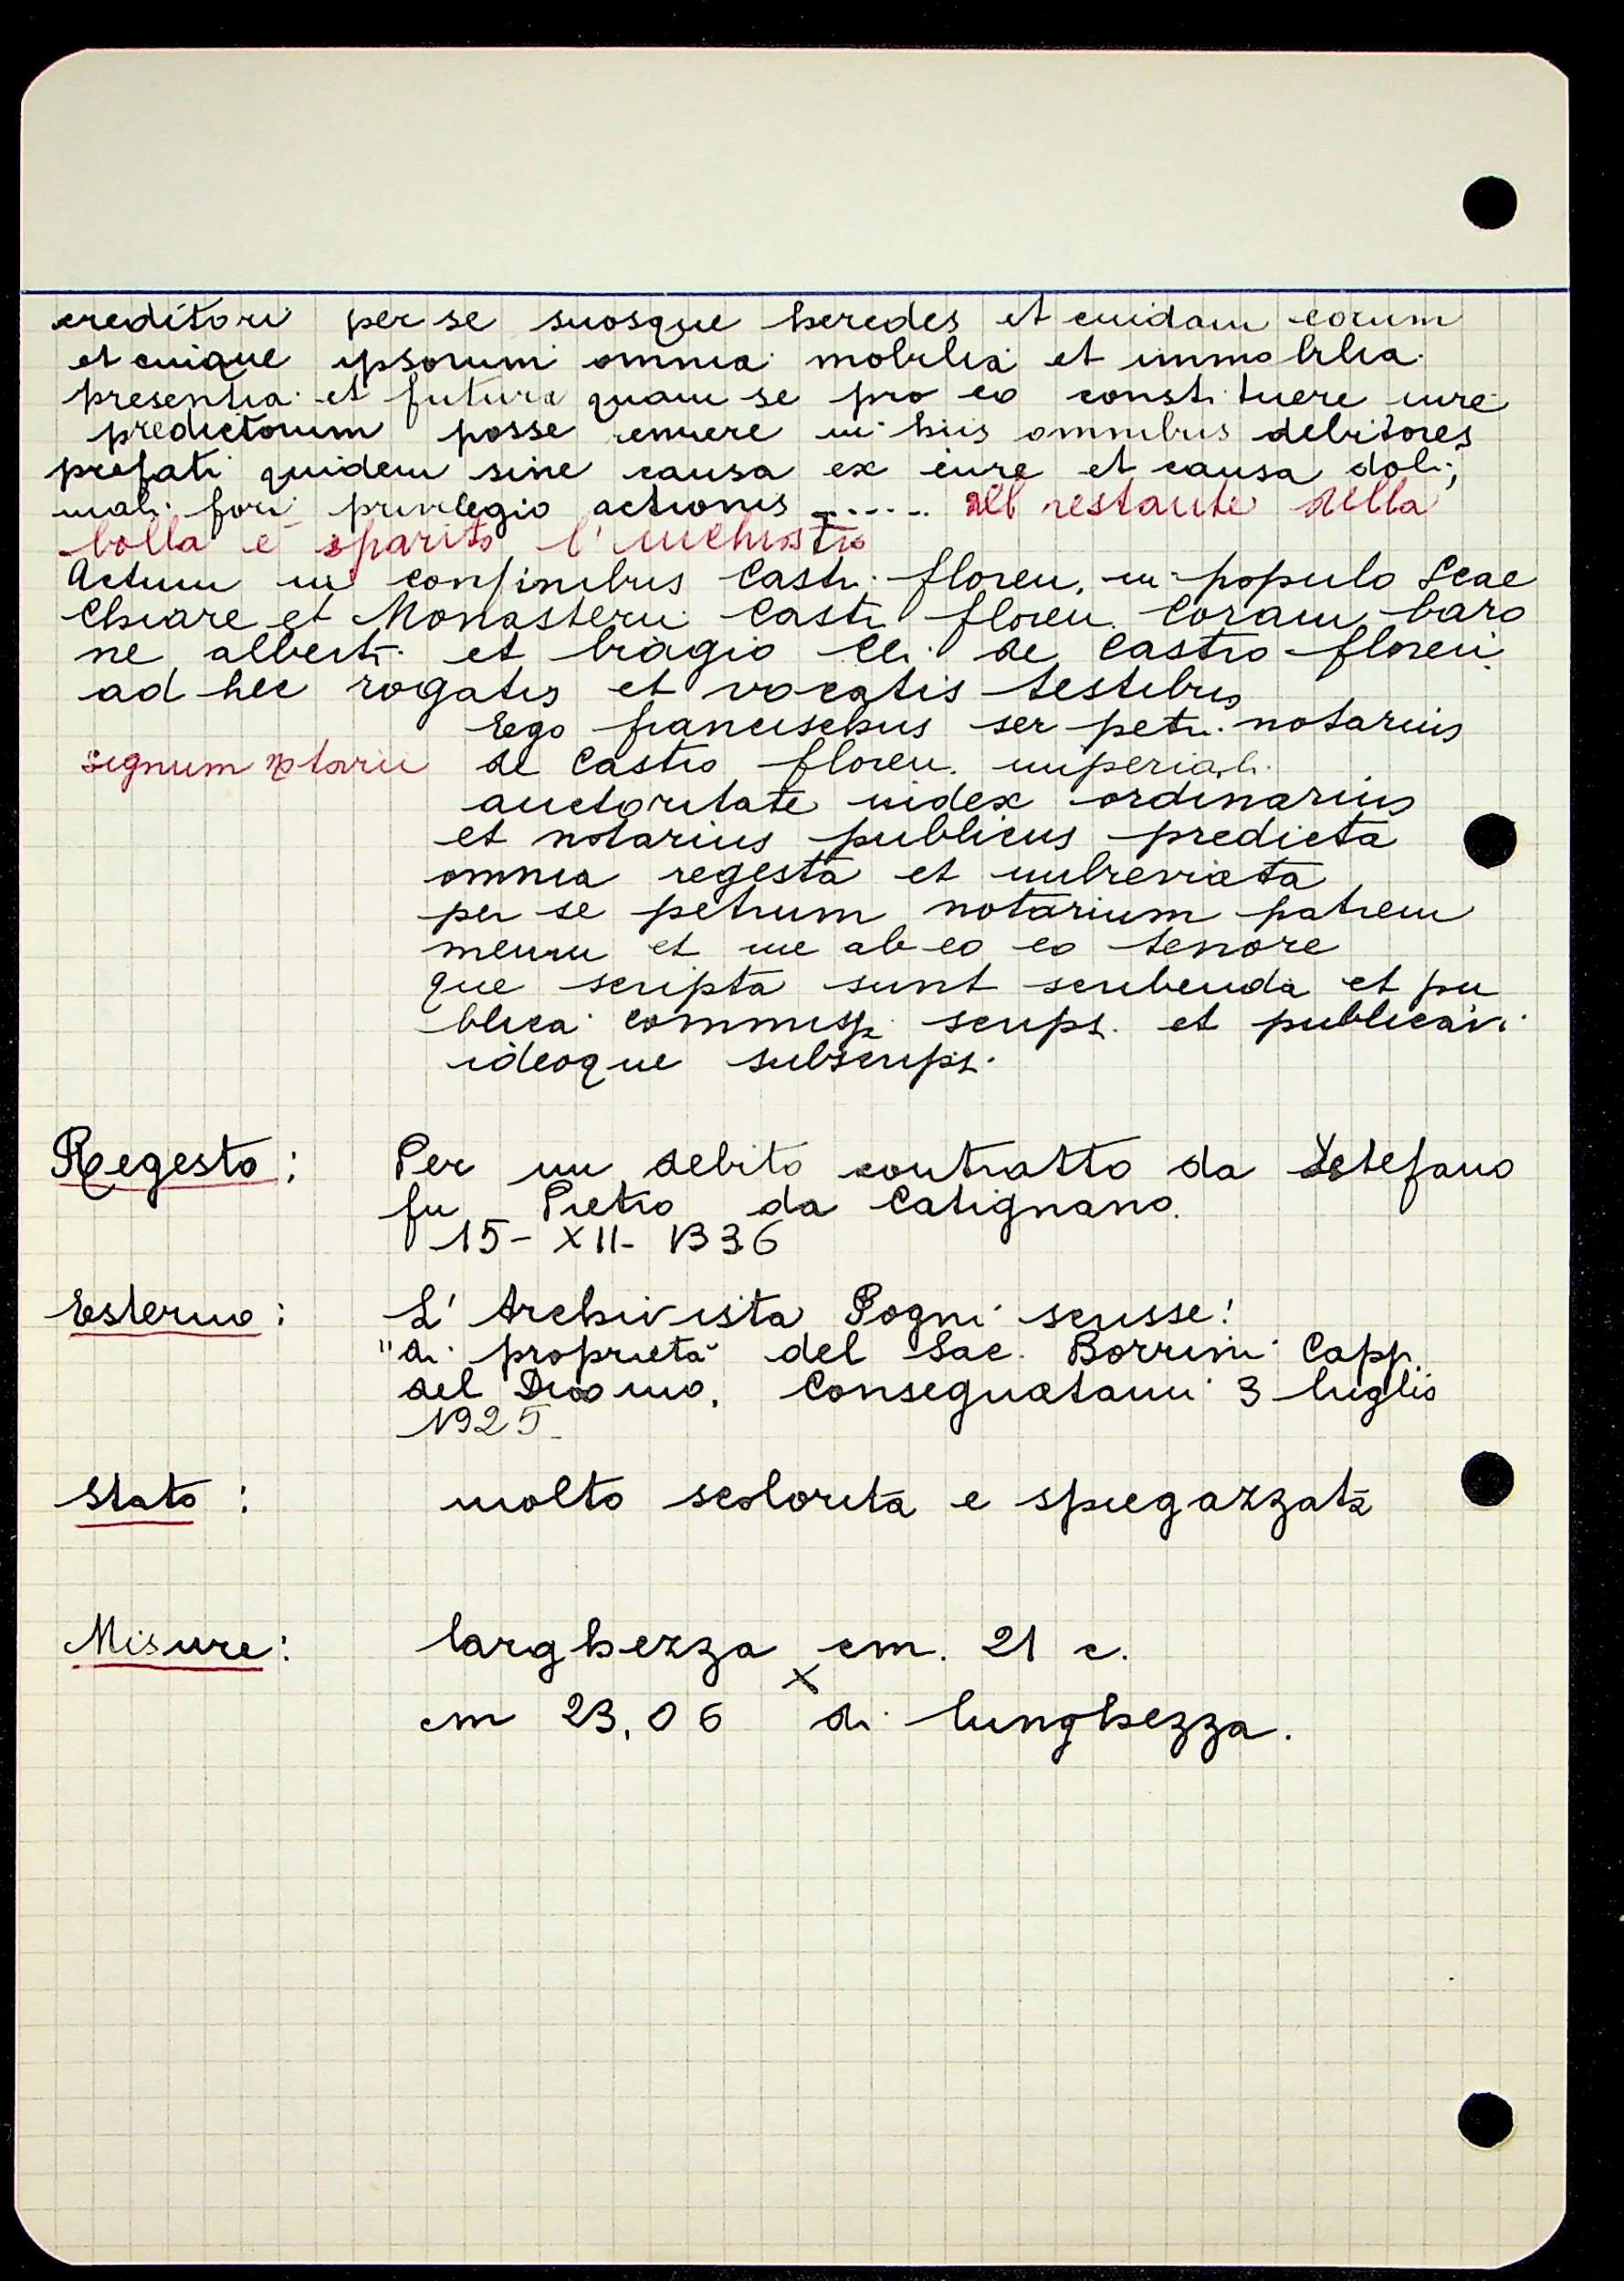 creditori per se suosque heredes et cuidam eorum
et cuique ipsorum omnia mobilia et immobilia
presentia et futura quam se pro eo constituere iure
predictorum posse in hiis omnibus debitores
prefati quidem sine causa ex iure et causa doli,
mali fori privilegio actionis ...... Al restante della
bolla è sparito l'inchiostro
Actum in confinibus Castri floren. in populo Scae
Chiare et Monasterii Castri floren. Coram baro
ne alberti et biagio Cei de Castro floreni
ad hec rogatis et vocatis testibus
Ego francischus ser petri notarius
signum notarii de Castro floren. imperiali
auctoritate iudex ordinarius
et notarius publicus predicta
omnia regesta et imbreviata
per se petrum notarium patrem
meum et me ab eo eo tenore
que scripta sunt scribenda et pu
blica commissi scripsi et publicavi
ideoque subscripsi
Regesto: Per un debito contratto da Stefano
fu Pietro da Catignano.
15-XII-1336
Esterno: L'Archivista Pogni scrisse:
"di proprietà del Sac. Borrini Capp.
del Duomo, Consegnatami 3 luglio
1925
Stato: molto scolorita e spiegazzata
Misure: larghezza cm. 21 c.
x
cm 23,06 di lunghezza.